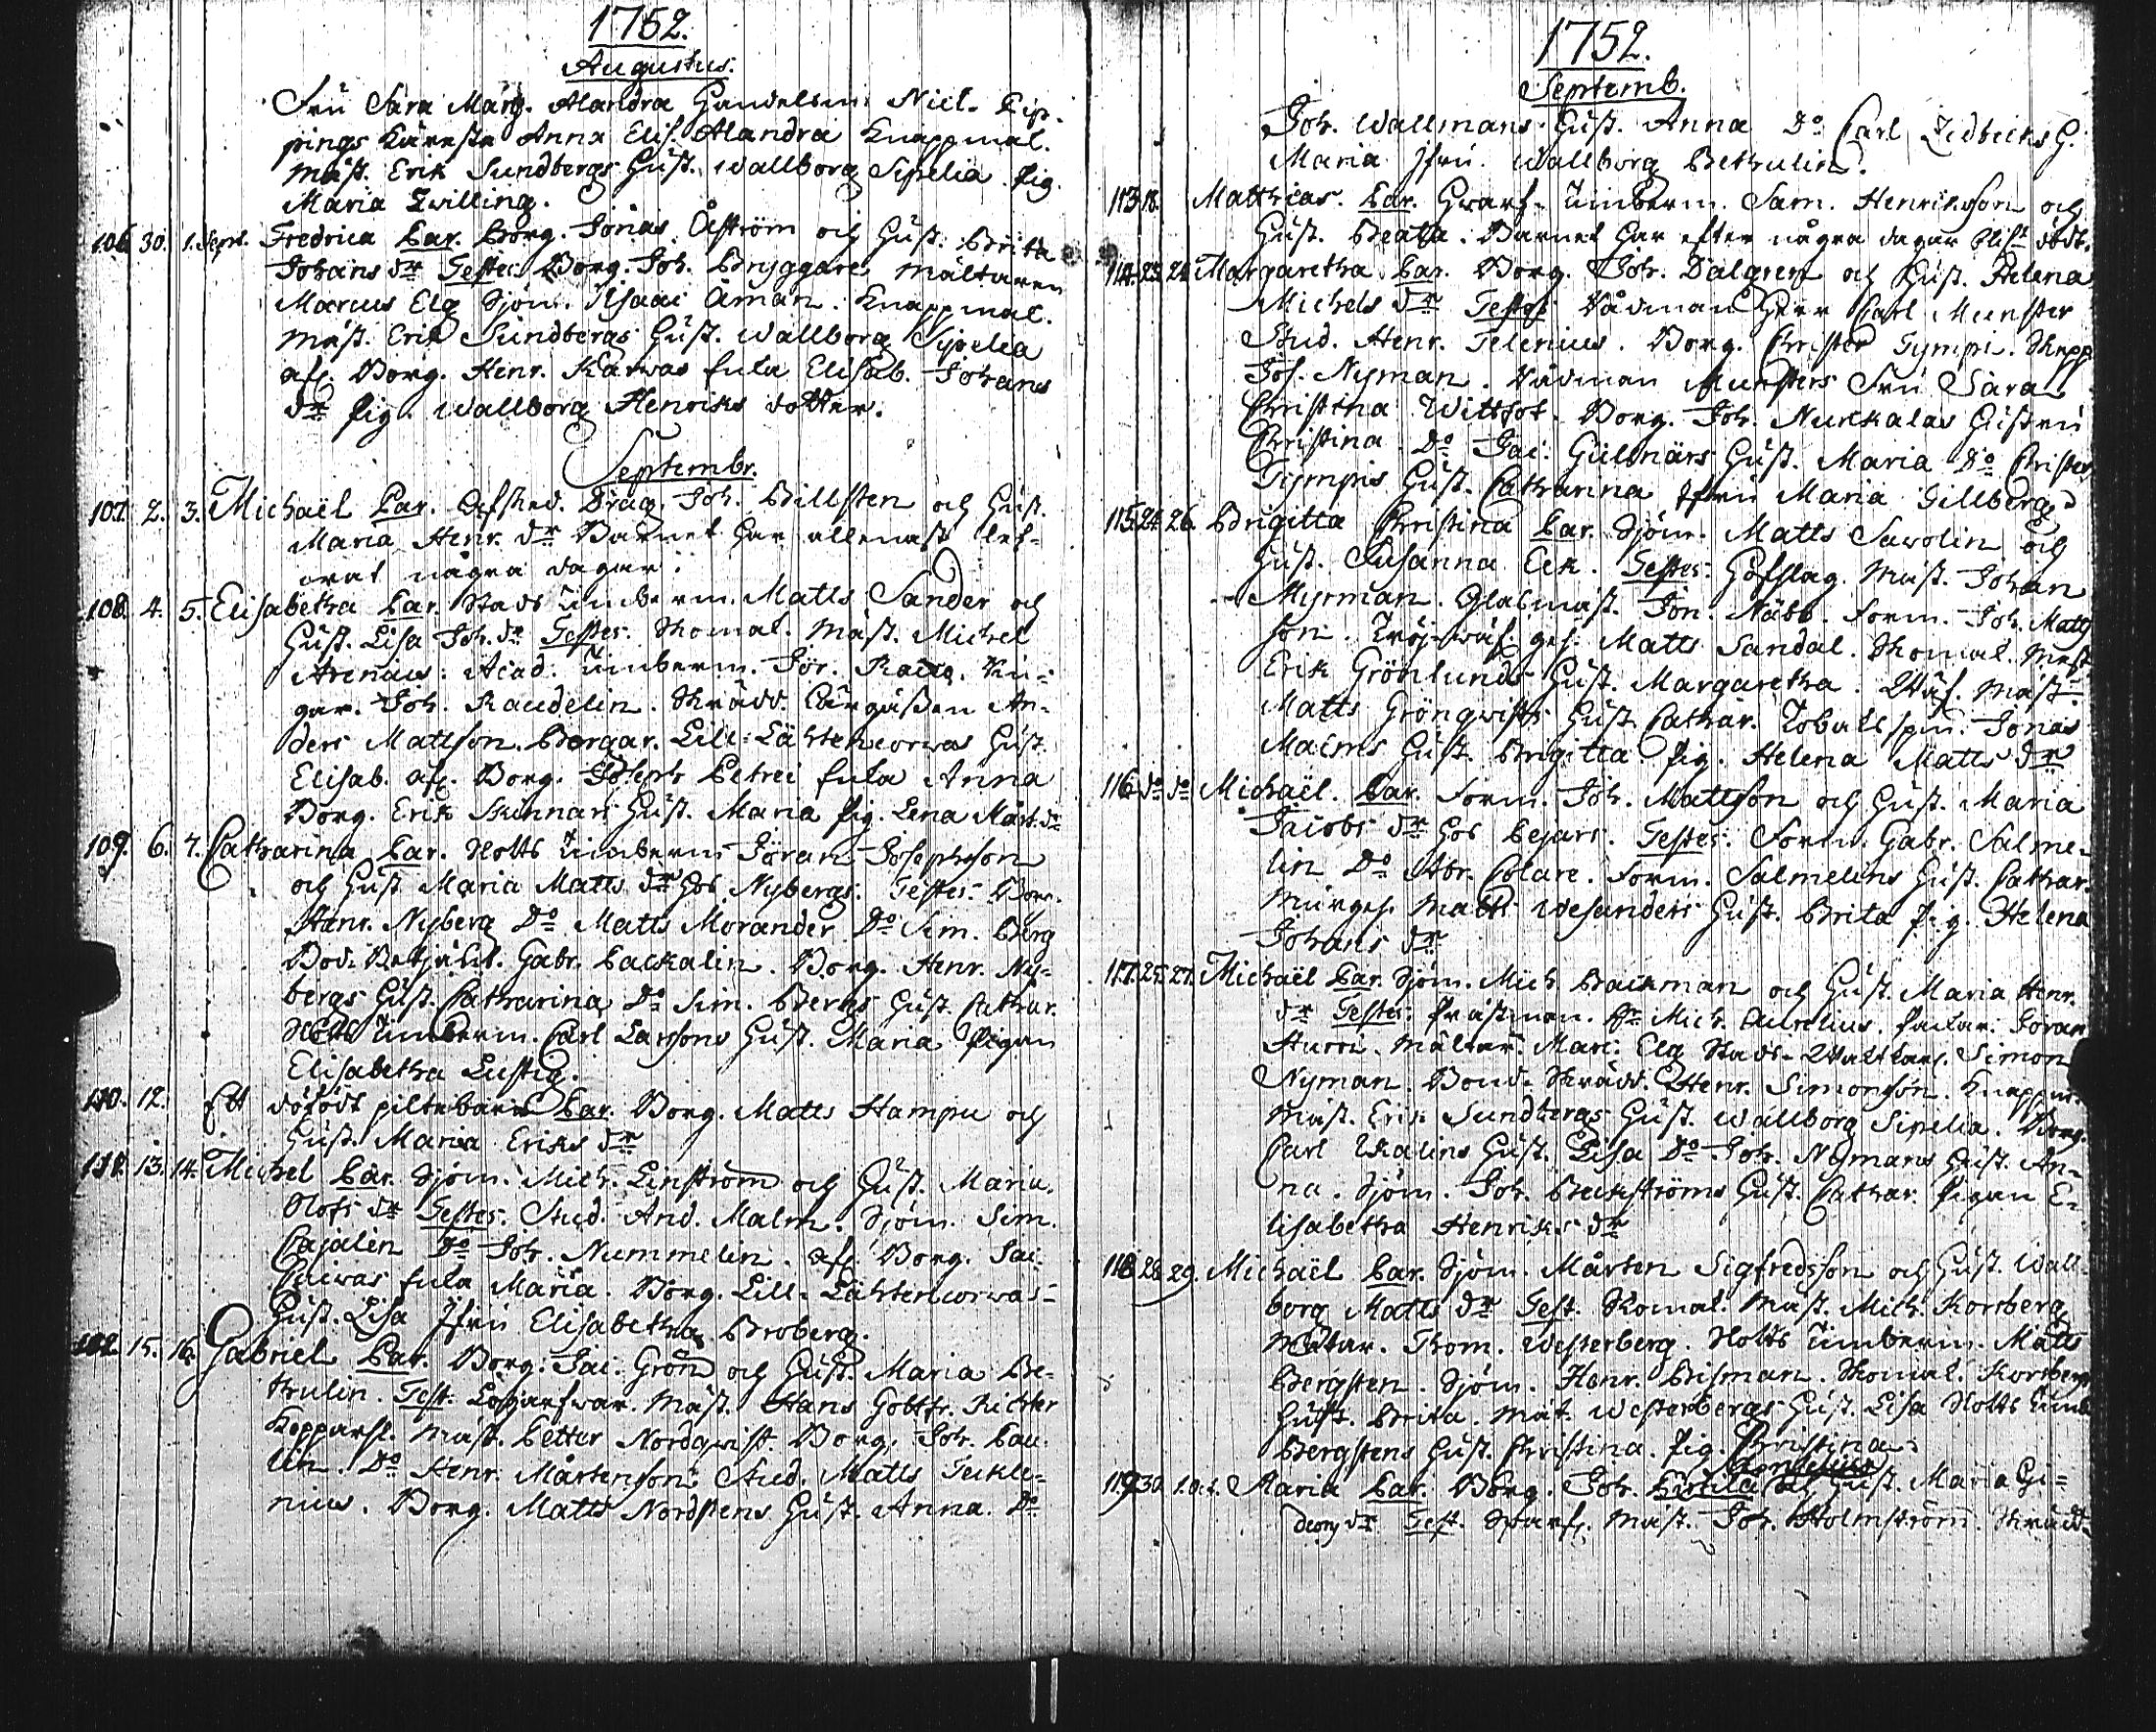 1752.
Augustus.
Fru Sara Marg. Alandra Handelsm. Nicl. Pip-
pings Käresta Anna Elis. Alandra Knappmak.
mäst. Erik Sundbergs Hust. Wallborg Sipelia. Pig.
Maria Zwilling.
106. 30. 1. Sept. Fredrica Par. Borg. Jonas Åström och Hust. Britta
Johans dr Testes Borg. Joh. Bryggare Mältaren
Marcus Elg Sjöm. Isaac Åman. Knappmak.
mäst. Erik Sundbergs Hust. Wallborg Sipelia
afl. Borg. Henr. Karwas Enka Elisab. Johans
dr Pig. Wallborg Henriks dotter.
Septembr.
107. 2. 3. Michaël Par. Afsked. Drag. Joh. Billsten och Hust.
Maria Henr. dr Barnet har allenast lef-
wat några dagar.
108. 4. 5. Elisabetha Par. Stads Timberm. Matts Sander och
Hust. Lisa Joh. dr Testes. Skomak. Mäst. Michel
Arenius: Acad. Timberm. Jör.
gar. Joh. Randelin. Skrädd. Lärgåssen An-
ders Mattson. Borgar. Lill-Lähtencorwas Hust.
Elisab. afl. Borg. Joseph Petrei Enka Anna
Borg. Erik Skinnars Hust. Maria Pig. Lena Mårt. dr
109. 6. 7. Catharina Par. Holts Timberm. Jöran Josephsson
och Hust. Maria Matts dr hos Nybergs. Testes. Borg.
Henr. Nyberg Do Matts Morander Do Sim. Berg
Bod. Betjänt. Gabr. Packalin. Borg. Henr. Ny-
bergs Hust. Catharina Do Sim. Bergs Hust. Cathar.
Holts Timberm. Carl Larssons Hust. Maria Pigan
Elisabetha Lustig.
110. 12. Ett dödfödt piltebarn Par. Borg. Matts Hampu och
Hust. Maria Eriks dr
111. 13. 14. Michel Par. Sjöm. Mich. Linström och Hust. Maria
Olofs dr Testes. Stud. And. Malm. Sjöm. Sim.
Cajalén Do Joh. Nummelin. afl. Borg. Jac.
Enka Maria. Borg. Lill-Lähtencorwas
Hust. Lisa Jfru Elisabetha Broberg.
112. 15. 16. Gabriel Par. Borg. Jac. Grön och Hust. Maria Be-
thulin. Test. Mäst. Hans Gottfr. Richter
Kopparsl. Mäst. Petter Nordqwist. Borg. Joh. Pau-
lin. Do Henr. Mårtenson. Stud. Matts Teckle-
nius. Borg. Matts Nordstens Hust. Anna. Do
1752.
Septemb.
Joh. Wallmans Hust. Anna Do Carl Lidbecks H.
Maria Jfru Wallborg Bethulin.
113. 18. Matthias. Par. Timberm. Sam. Henriksson och
Hust. Beata. Barnet har efter några dagar blifit dödt.
114. 23. 24. Margaretha Par. Borg. Joh. Dalgren och Hust. Helena
Michels dr Testes Rådman Herr Carl Munster
Stud. Henr. Telenius. Borg. Christer Tympi. Skepp.
Joh. Nyman. Rådman Munsters Fru Sara
Christina Wittfot. Borg. Joh. Nurkalas Hustru
Christina Do Jac. Hust. Maria Do Christer
Tympis Hust. Catharina Jfru Maria Gillberg
115. 24. 26. Brigitta Christina Par. Sjöm. Matts Sawolin och
Hust. Susanna Eek. Testes. Hofslag. Mäst. Johan
Myrman. Glasmäst. Jon. Näbb. Form. Joh. Matts
son. ges. Matts Sandal. Skomak. Mäst.
Erik Grönlunds Hust. Margaretha. Wäf. Mäst.
Matts Grönqwists Hust. Cathar. Tobaksspin. Jonas
Malms Hust. Brigitta Pig. Helena Matts dr
116. do do Michaël. Par. Form. Joh. Mattson och Hust. Maria
Jacobs dr hos Testes. Form. Gabr. Salme-
lin Do Abr. Polare. Form. Salmelins Hust. Cathar.
Murges. Matts Wesanders Hust. Brita Pig. Helena
Johans dr
117. 25. 27. Michaël Par. Sjöm. Mich. Backman och Hust. Maria Henr.
dr Testes. Prästman. Hr Mich. Aurelius. Jöran
Hurri. Mältar. Marc. Elg Stads-Waktkarl. Simon
Nyman. Bond-Skrädd. Henr. Simonson. Knappm.
mäst. Eric Sundbergs Hust. Wallborg Sipelia. Borg.
Carl Walins Hust. Lisa Do Joh. Nymans Hust. An-
na. Sjöm. Joh. Beckströms Hust. Cathar. Pigan E-
lisabetha Henriks dr
118. 28. 29. Michaël Par. Sjöm. Mårten Sigfredsson och Hust. Wall-
borg Matts dr Test. Skomak. Mäst. Mich. Korsberg
Thom. Westerberg. Holts Timberm. Matts
Bergsten. Sjöm. Henr. Bisman. Skomak. Korsbergs
Hust. Brita. Westerbergs Hust. Lisa Holts Timb.
Bergstens Hust. Christina. Pig. Christina
119. 30. 1. Oct. Maria Par. Borg. Joh. och Hust. Maria Gi-
deons dr Test. Mäst. Joh. Holmström. Skrädd-